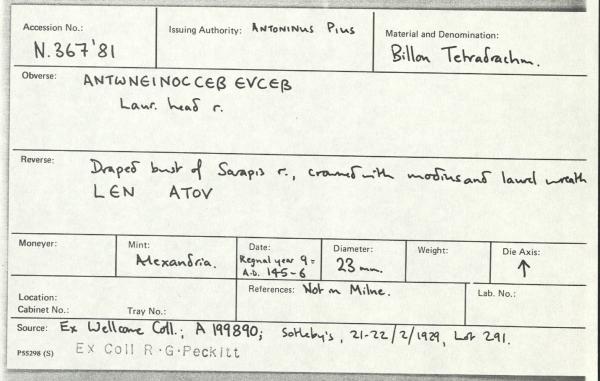 Accession No.: Issuing Authority: ANTONINUS PIUS Material and Denomination:
N.367'81 Billon Tetradrachm.
Obverse: ANTWNEINOCCEB EVCEB
Laur. head r.
Reverse: Draped bust of Sarapis r., crowned with modius and laurel wreath
LEN ATOV
Moneyer: Mint: Date: Diameter: Weight: Die Axis:
Alexandria. Regnal year 9 = 23 mm. ↑
A.D. 145-6
Location: References: Not in Milne. Lab. No.:
Cabinet No.: Tray No.:
Source: Ex Wellcome Coll.; A 199890; Sotheby's, 21-22/2/1929, Lot 291.
P55298 (S) Ex Coll R.G.Peckitt